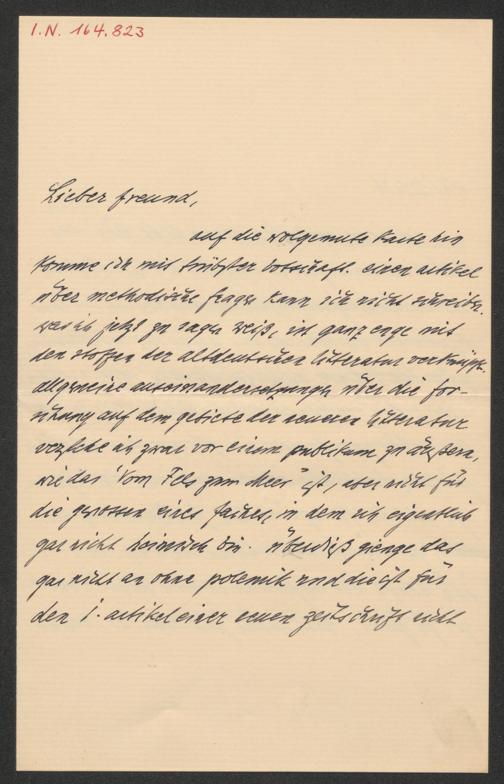 I.N. 164.823
Lieber freund,
auf die wolgemute karte hin
komme ich mit trübster botschaft. einen artikel
über methodische fragen kann ich nicht schreiben.
was ich jetzt zu sagen weiß, ist ganz enge mit
den stoffen der altdeutschen litteratur verknüpft.
allgemeine auseinandersetzungen über die for-
schung auf dem gebiete der neueren litteratur
ich zwar vor einem publikum zu äußern,
wie das 'Vom Fels zum Meer' ist, aber nicht für
die genossen eines faches, in dem ich eigentlich
gar nicht heimisch bin. überdieß gienge das
gar nicht an ohne polemik und die ist für
den 1. artikel einer neuen zeitschrift nicht